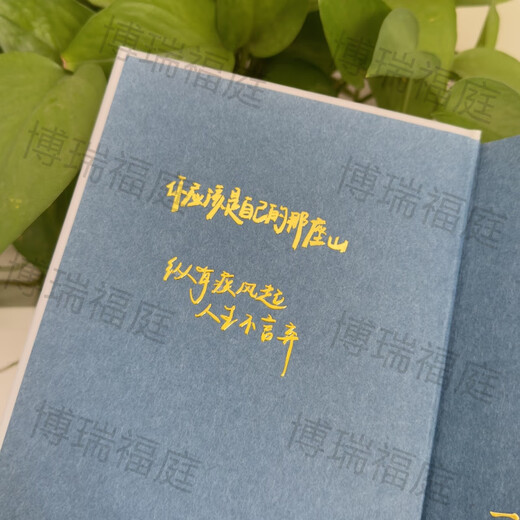 你应该是自己的那座山
纵有疾风起
人生不言弃
博瑞福庭
博瑞福庭
博瑞福庭
博瑞福庭
博瑞福庭
博瑞福庭
博瑞福庭
博瑞福庭
博瑞福庭